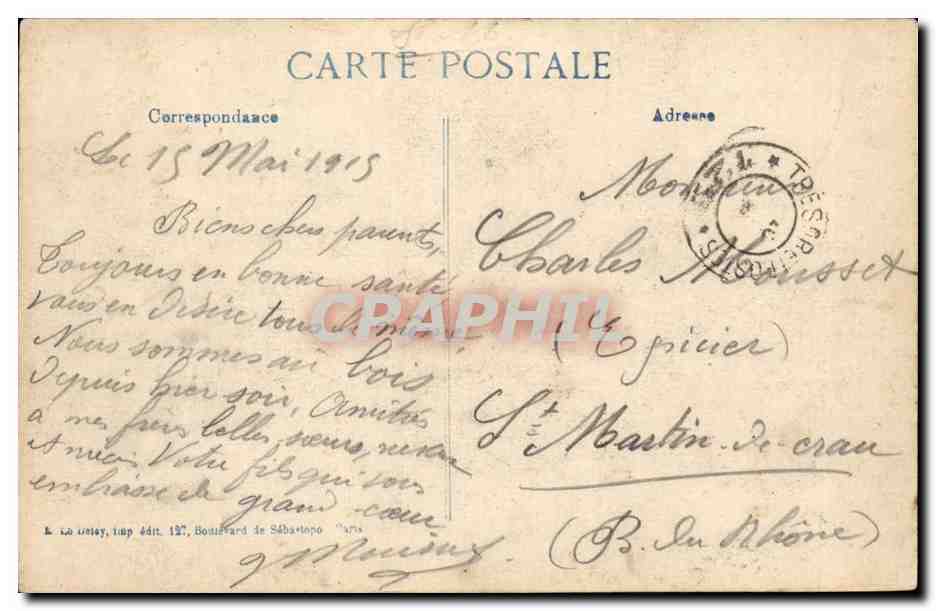 CARTE POSTALE
Correspondance
Adresse
Le 15 Mai 1915
Biens chers parents,
Toujours en bonne santé
vous en désire tous de même
Nous sommes au bois
depuis hier soir, Amitiés
à mes frères belles sœurs, neveux
et nièces Votre fils qui vous
embrasse de grand cœur
E. Le Deley, imp édit. 127, Boulevard de Sébastopo Paris
Monsieur
Charles Mousset
(Epicier)
St Martin-de-crau
(B. du Rhône)
TRESOR ET POSTES
CRAPHIL